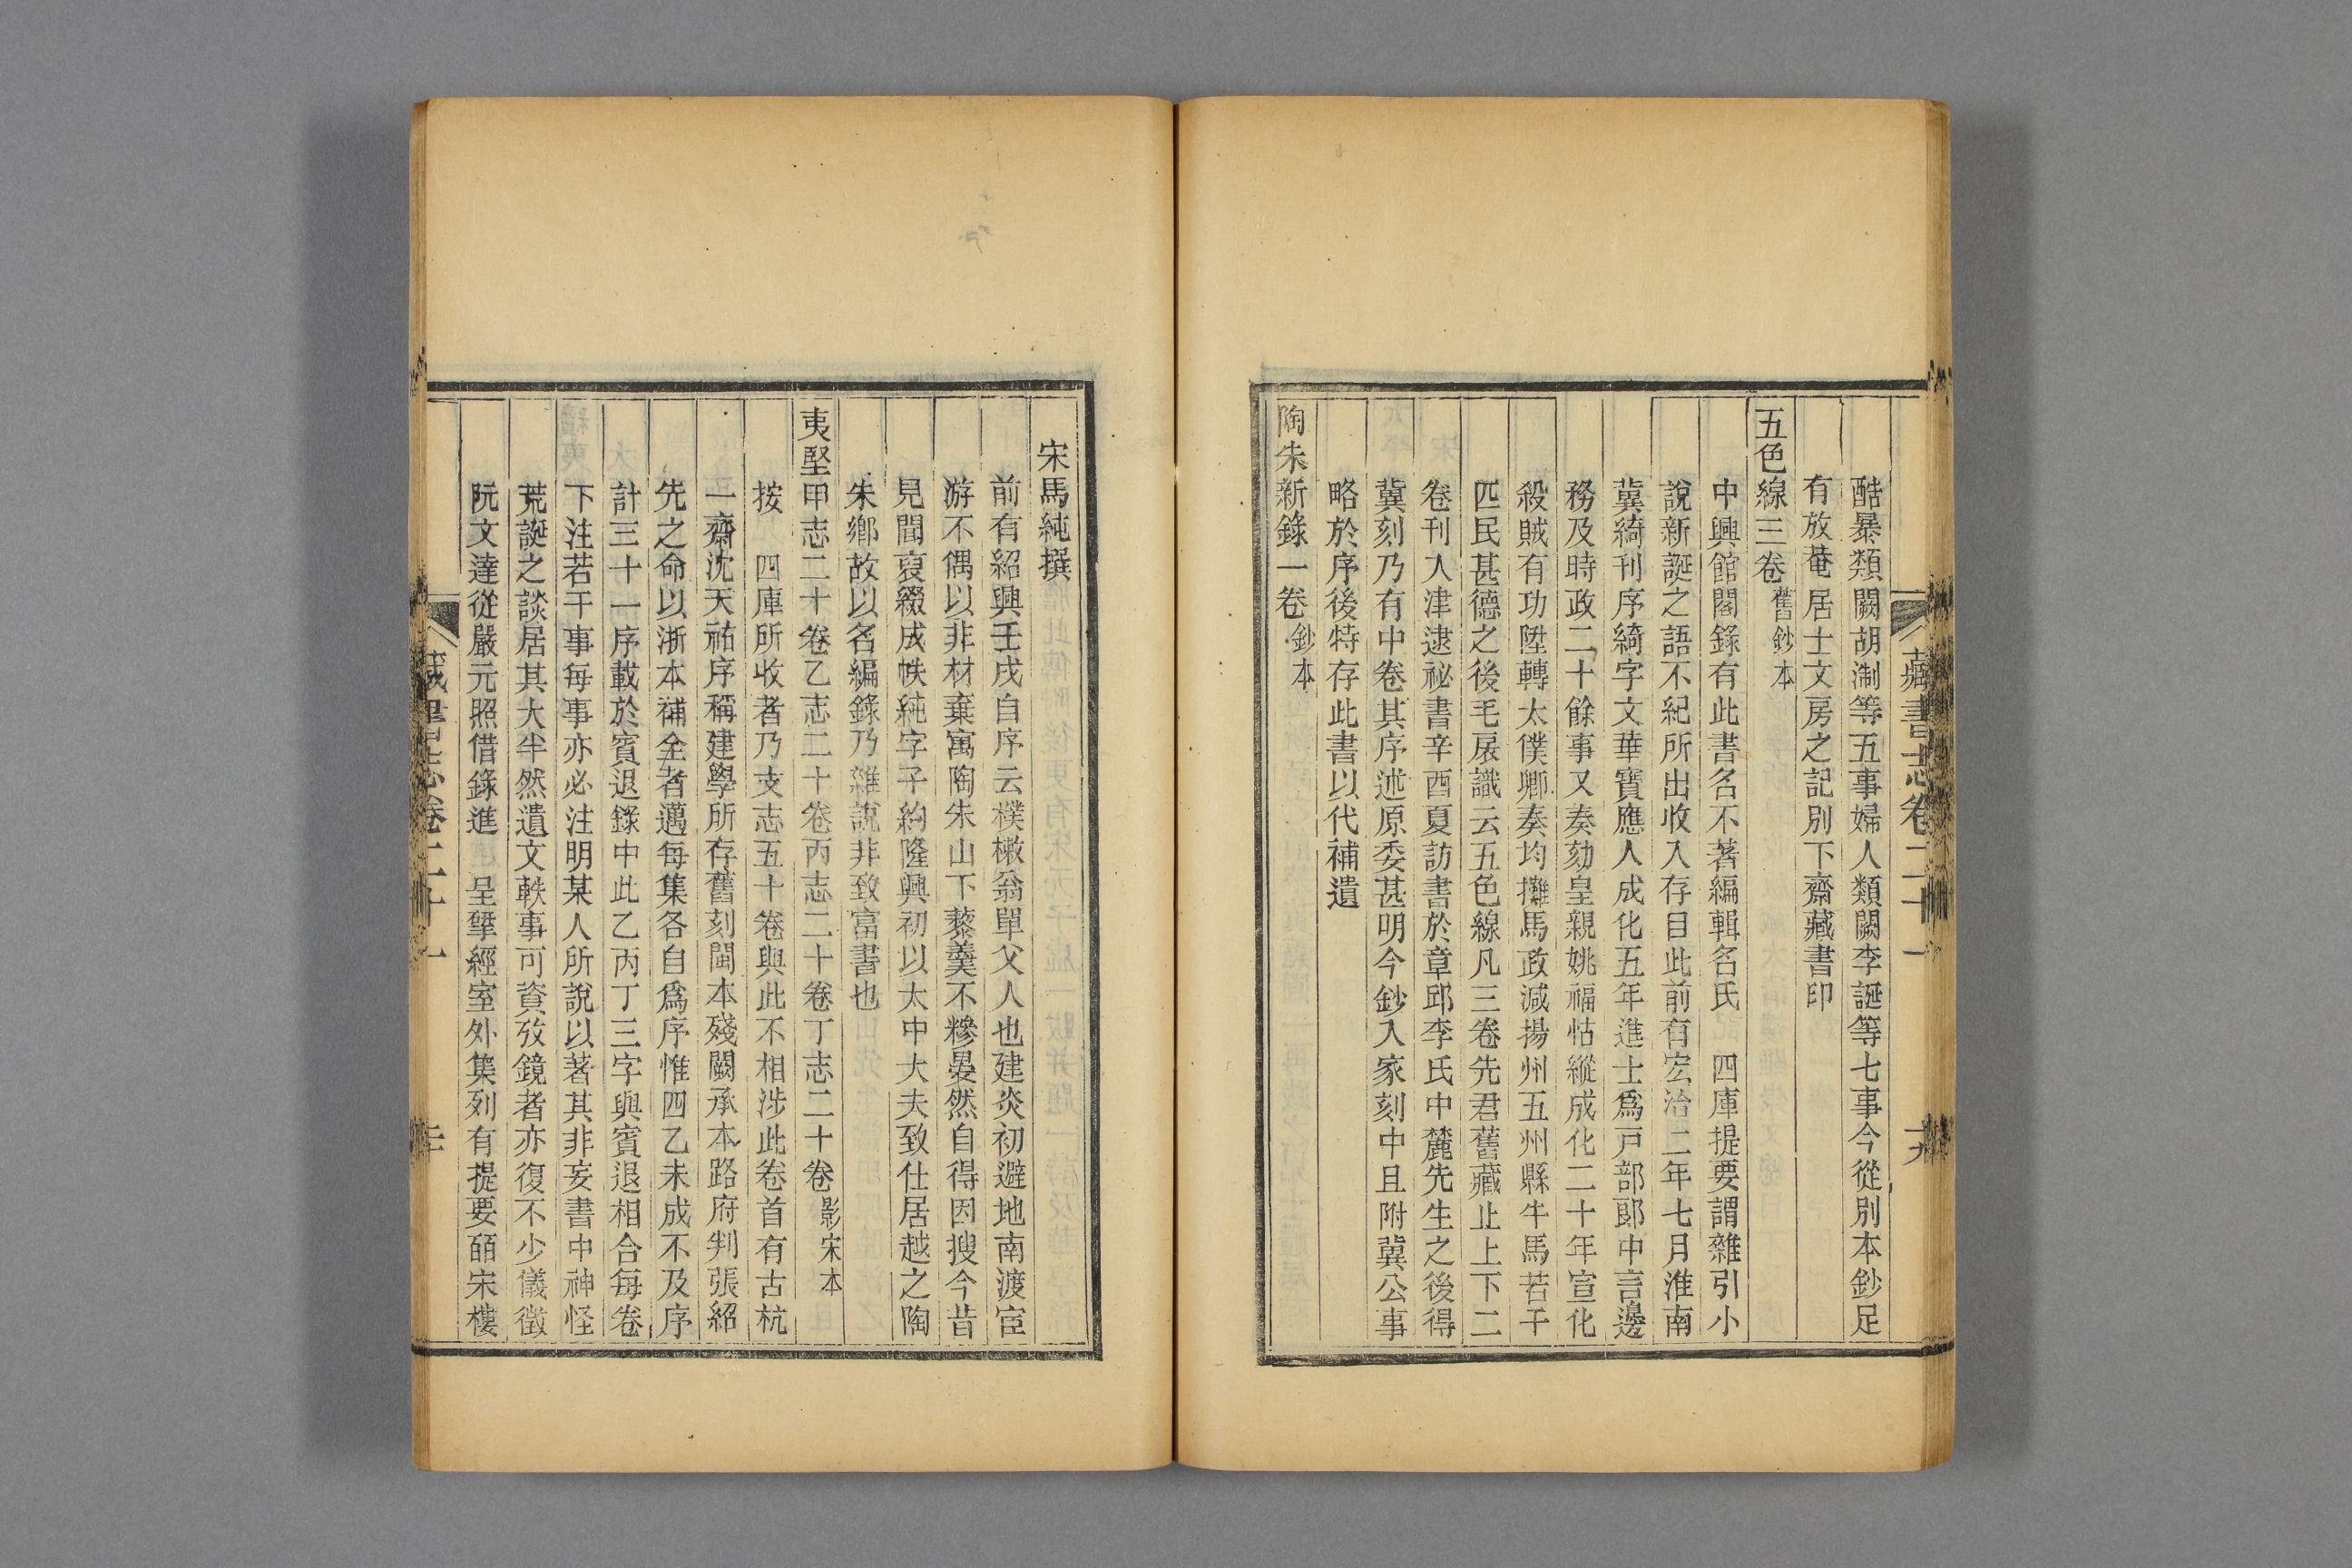 藏書志卷二十一
十九
酷暴類闕胡淛等五事婦人類闕李誕等七事今從別本鈔足
有放菴居士文房之記別下齋藏書印
五色線三卷舊鈔本
中興館閣錄有此書名不著編輯名氏　四庫提要謂雜引小
說新誕之語不紀所出收入存目此前有宏治二年七月淮南
冀綺刊序綺字文華寶應人成化五年進士爲戸部郞中言邊
務及時政二十餘事又奏劾皇親姚福怙縱成化二十年宣化
殺賊有功陞轉太僕卿奏均攤馬政減揚州五州縣牛馬若干
匹民甚德之後毛扆識云五色線凡三卷先君舊藏止上下二
卷刊入津逮祕書辛酉夏訪書於章邱李氏中麓先生之後得
冀刻乃有中卷其序述原委甚明今鈔入家刻中且附冀公事
略於序後特存此書以代補遺
陶朱新錄一卷鈔本
宋馬純撰
前有紹興壬戌自序云樸樕翁單父人也建炎初避地南渡宦
游不偶以非材棄寓陶朱山下藜羹不糝晏然自得因搜今昔
見聞裒綴成帙純字子約隆興初以太中大夫致仕居越之陶
朱鄉故以名編錄乃雜說非致富書也
夷堅甲志二十卷乙志二十卷丙志二十卷丁志二十卷影宋本
按　四庫所收者乃支志五十卷與此不相涉此卷首有古杭
一齋沈天祐序稱建學所存舊刻閩本殘闕承本路府判張紹
先之命以浙本補全者邁每集各自爲序惟四乙未成不及序
計三十一序載於賓退錄中此乙丙丁三字與賓退相合每卷
下注若干事每事亦必注明某人所說以著其非妄書中神怪
荒誕之談居其大半然遺文軼事可資攷鏡者亦復不少儀徵
阮文達從嚴元照借錄進　呈揅經室外集列有提要皕宋樓
藏書志卷二十一
二十